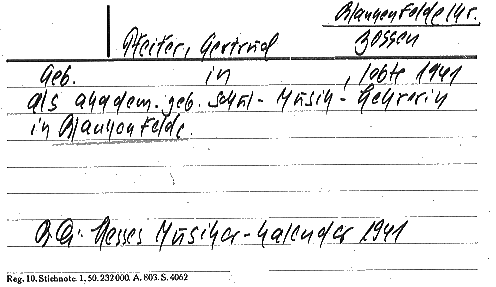 Blankenfelde Kr.
Zossen
Pfeifer, Gertrud
Geb. in , lebte 1941
als akadem. geb. Schul-Musik-Lehrerin
in Blankenfelde.
Hesses Musiker-Kalender 1941
Reg. 10. Stichnote. 1, 50. 232000. A. 803. S. 4062